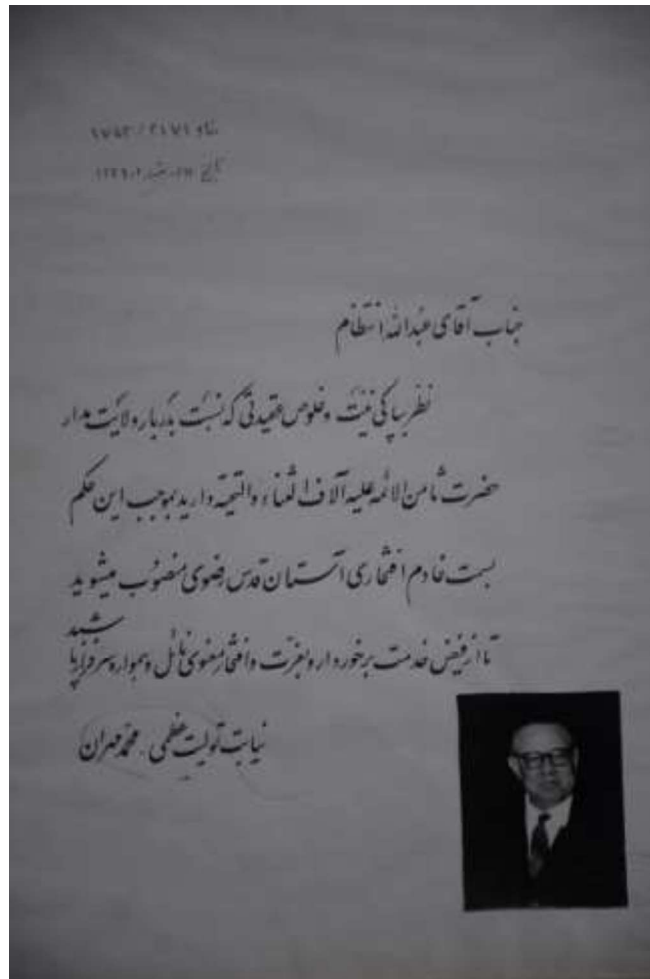 جناب آقای عبدالله انتظام
نظر بپاکی نیت و خلوص عقیدتی که نسبت بدربار ولایت مدار
حضرت ثامن الائمه علیه آلاف الثناء والتحیة دارید بموجب این حکم
بسمت خادم افتخاری آستان قدس رضوی منصوب میشوید
تا از فیض خدمت برخوردار و بعزت و افتخار معنوی نائل و همواره سرفراز باشید
نیابت تولیت عظمی . محمد مهران